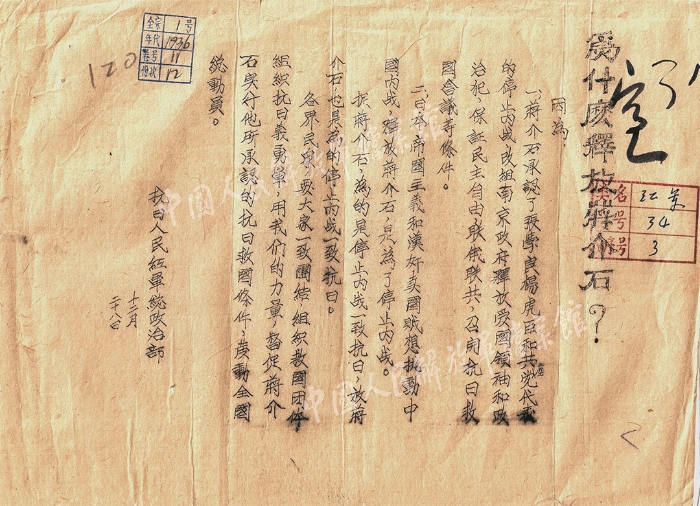 為什広釋放蔣介石？
因為：
一、蔣介石承認了張學良楊虎臣和共党代表
的停止内战，改祖南京政府釋放愛國領袖和政
治犯，保証民主自由，联俄联共，召開抗日救
國会議等條件。
二、日本帝國主義和漢奸卖國賊想挑動中
國内战，釋放蔣介石，是為了停止内战。
抓蔣介石，為的是停止内战一致抗日，放蔣
介石，也是為的停止内战一致抗日。
各界民众要大家一致團結，組織救國团体，
組織抗日義勇軍，用我們的力量，督促蔣介
石实行他所承認的抗日救國條件，廣動全國
総動員。
抗日人民紅軍総政治部
十二月
二十八日
全宗 1 号
年代 1936
卷号 11
件状 12
120
名 江革
号 34
号 3
中国人民解放军档案馆
中国人民解放军档案馆